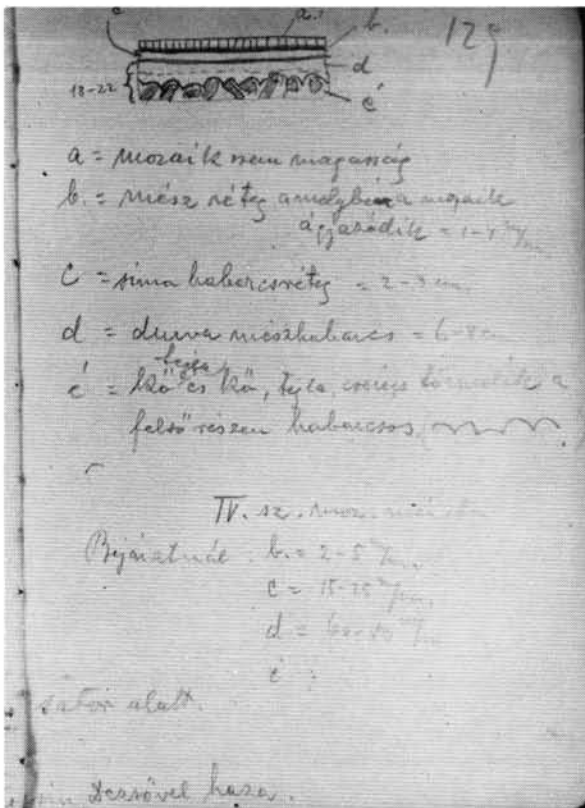 a.
c b.
129
d
18-22
é
a = mozaik szem magasság
b. = mész réteg amelybe a mozaik
ágyazódik = 1-4 m/m.
c = sima habarcsréteg = 2-3 cm.
d = durva mészhabarcs = 6-8 c
tégla
é = kő és kő, tégla, cserép törmelék a
felső részen habarcsos.
IV. sz. moz.
Bejáratnál: b. = 2-5 m/m.
c = 15-25 m/m.
d = 60-80 m/m
é :
sátor alatt.
Dezsővel haza.